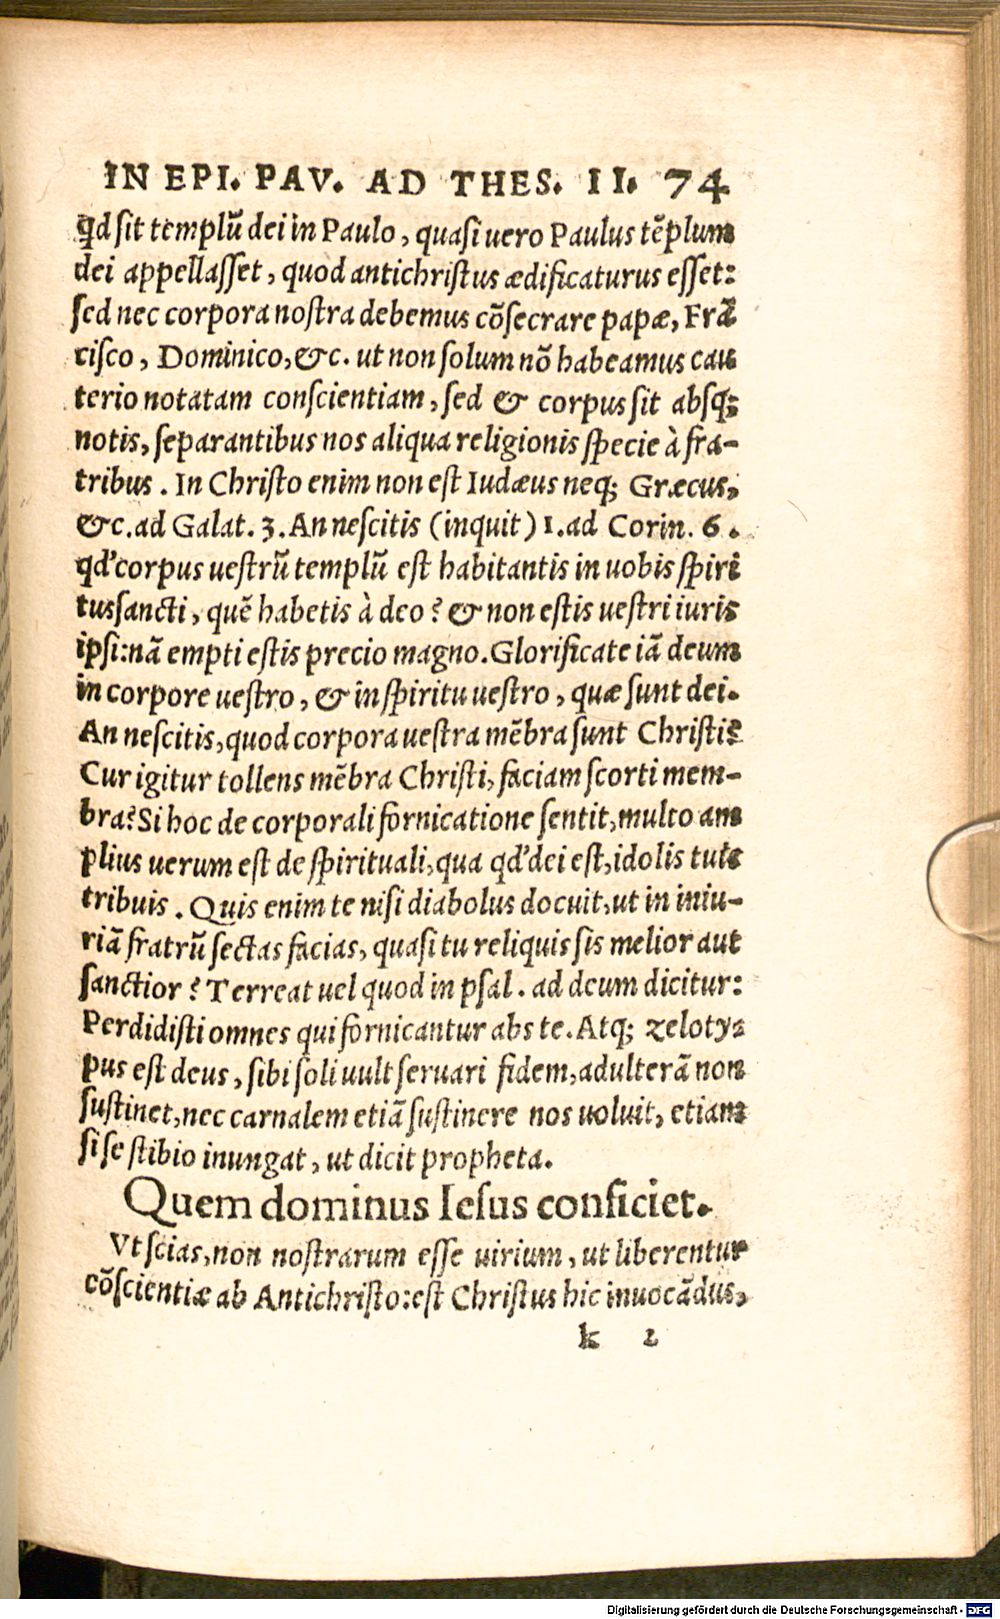 IN EPI. PAV. AD THES. II. 74
qd sit templũ dei in Paulo, quasi uero Paulus tẽplum
dei appellasset, quod antichristus ædificaturus esset:
sed nec corpora nostra debemus cõsecrare papæ, Frã
cisco, Dominico, &c. ut non solum nõ habeamus cau
terio notatam conscientiam, sed & corpus sit absq;
notis, separantibus nos aliqua religionis specie à fra-
tribus. In Christo enim non est Iudæus neq; Græcus,
&c. ad Galat. 3. An nescitis (inquit) 1. ad Corin. 6.
qd' corpus uestrũ templũ est habitantis in uobis spiri
tussancti, quẽ habetis à deo? & non estis uestri iuris
ipsi: nã empti estis precio magno. Glorificate iã deum
in corpore uestro, & in spiritu uestro, quæ sunt dei.
An nescitis, quod corpora uestra mẽbra sunt Christi?
Cur igitur tollens mẽbra Christi, faciam scorti mem-
bra? Si hoc de corporali fornicatione sentit, multo am
plius uerum est de spirituali, qua qd' dei est, idolis tuis
tribuis. Quis enim te nisi diabolus docuit, ut in iniu-
riã fratrũ sectas facias, quasi tu reliquis sis melior aut
sanctior? Terreat uel quod in psal. ad deum dicitur:
Perdidisti omnes qui fornicantur abs te. Atq; zeloty-
pus est deus, sibi soli uult seruari fidem, adulterã non
sustinet, nec carnalem etiã sustinere nos uoluit, etiam
si se stibio inungat, ut dicit propheta.
Quem dominus Iesus conficiet.
Vt scias, non nostrarum esse uirium, ut liberentur
cõscientiæ ab Antichristo: est Christus hic inuocãdus,
k 2
Digitalisierung gefördert durch die Deutsche Forschungsgemeinschaft - DFG